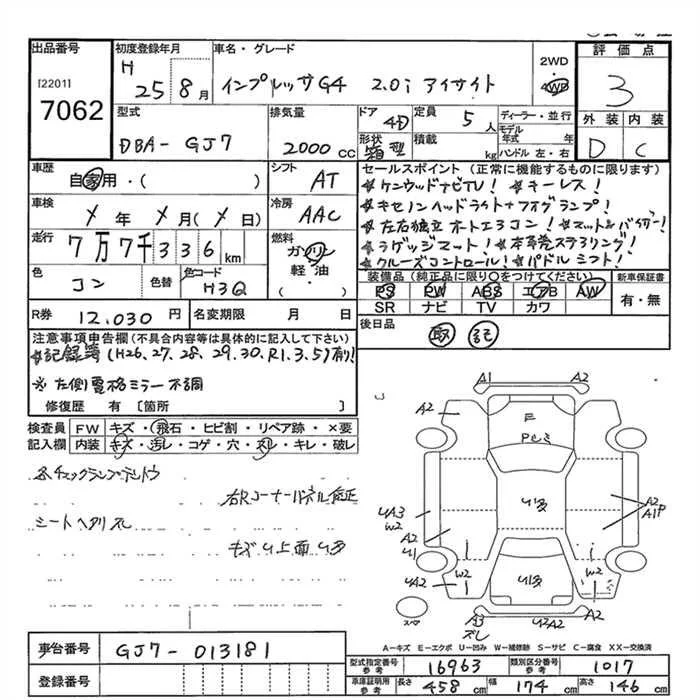 出品番号
[2201]
7062
初度登録年月
H 25年 8月
車名・グレード
インプレッサG4 2.0i アイサイト
2WD
4WD
評価点
3
外装 内装
D C
型式
DBA-GJ7
排気量
2000 CC
ドア
4D
形状
箱型
定員
5人
積載
kg
ディーラー・並行
モデル年式 年
ハンドル 左・右
車歴
自家用・( )
シフト
AT
車検
年 月( 日)
冷房
AAC
走行
7万7千336km
燃料
ガソリン
軽油
( )
色
コン
色替
色コード
H3Q
R券 12,030円
名変期限 月 日
セールスポイント(正常に機能するものに限ります)
☆ケンウッドナビTV! ☆キーレス!
☆キセノンヘッドライト+フォグランプ!
☆左右独立オートエアコン! ☆マット&バイザー!
☆ラゲッジマット! ☆本革巻ステアリング!
☆クルーズコントロール! ☆パドルシフト!
装備品(純正品に限り○をつけてください)
新車保証書
PS PW ABS エアB AW
有・無
SR ナビ TV カワ
後日品
取 記
注意事項申告欄(不具合内容等は具体的に記入して下さい)
☆記録簿(H26,27,28,29,30,R1,3,5)有り!
※左側電格ミラー不調
修復歴 有 [箇所 ]
検査員記入欄
FW キズ・飛石・ヒビ割・リペア跡・×要
内装 キズ・汚レ・コゲ・穴・スレ・キレ・破レ
各チェックランプテントウ
右Rコーナーパネル修正
シートヘタリ スレ
キズ U 上面 U多
A1 A2
A2
E
P
U多
UA3
W2
A2
U1
A2
A1P
UA2
W2
U多
W2
スペア
A3
スレ
UA2
A2
A-キズ E-エクボ U-凹み W-補修跡 S-サビ C-腐食 XX-交換済
車台番号
GJ7-013181
登録番号
型式指定番号 参考
16963
類別区分番号 参考
1017
車庫証明用 参考
長さ 458 cm
幅 174 cm
高さ 146 cm